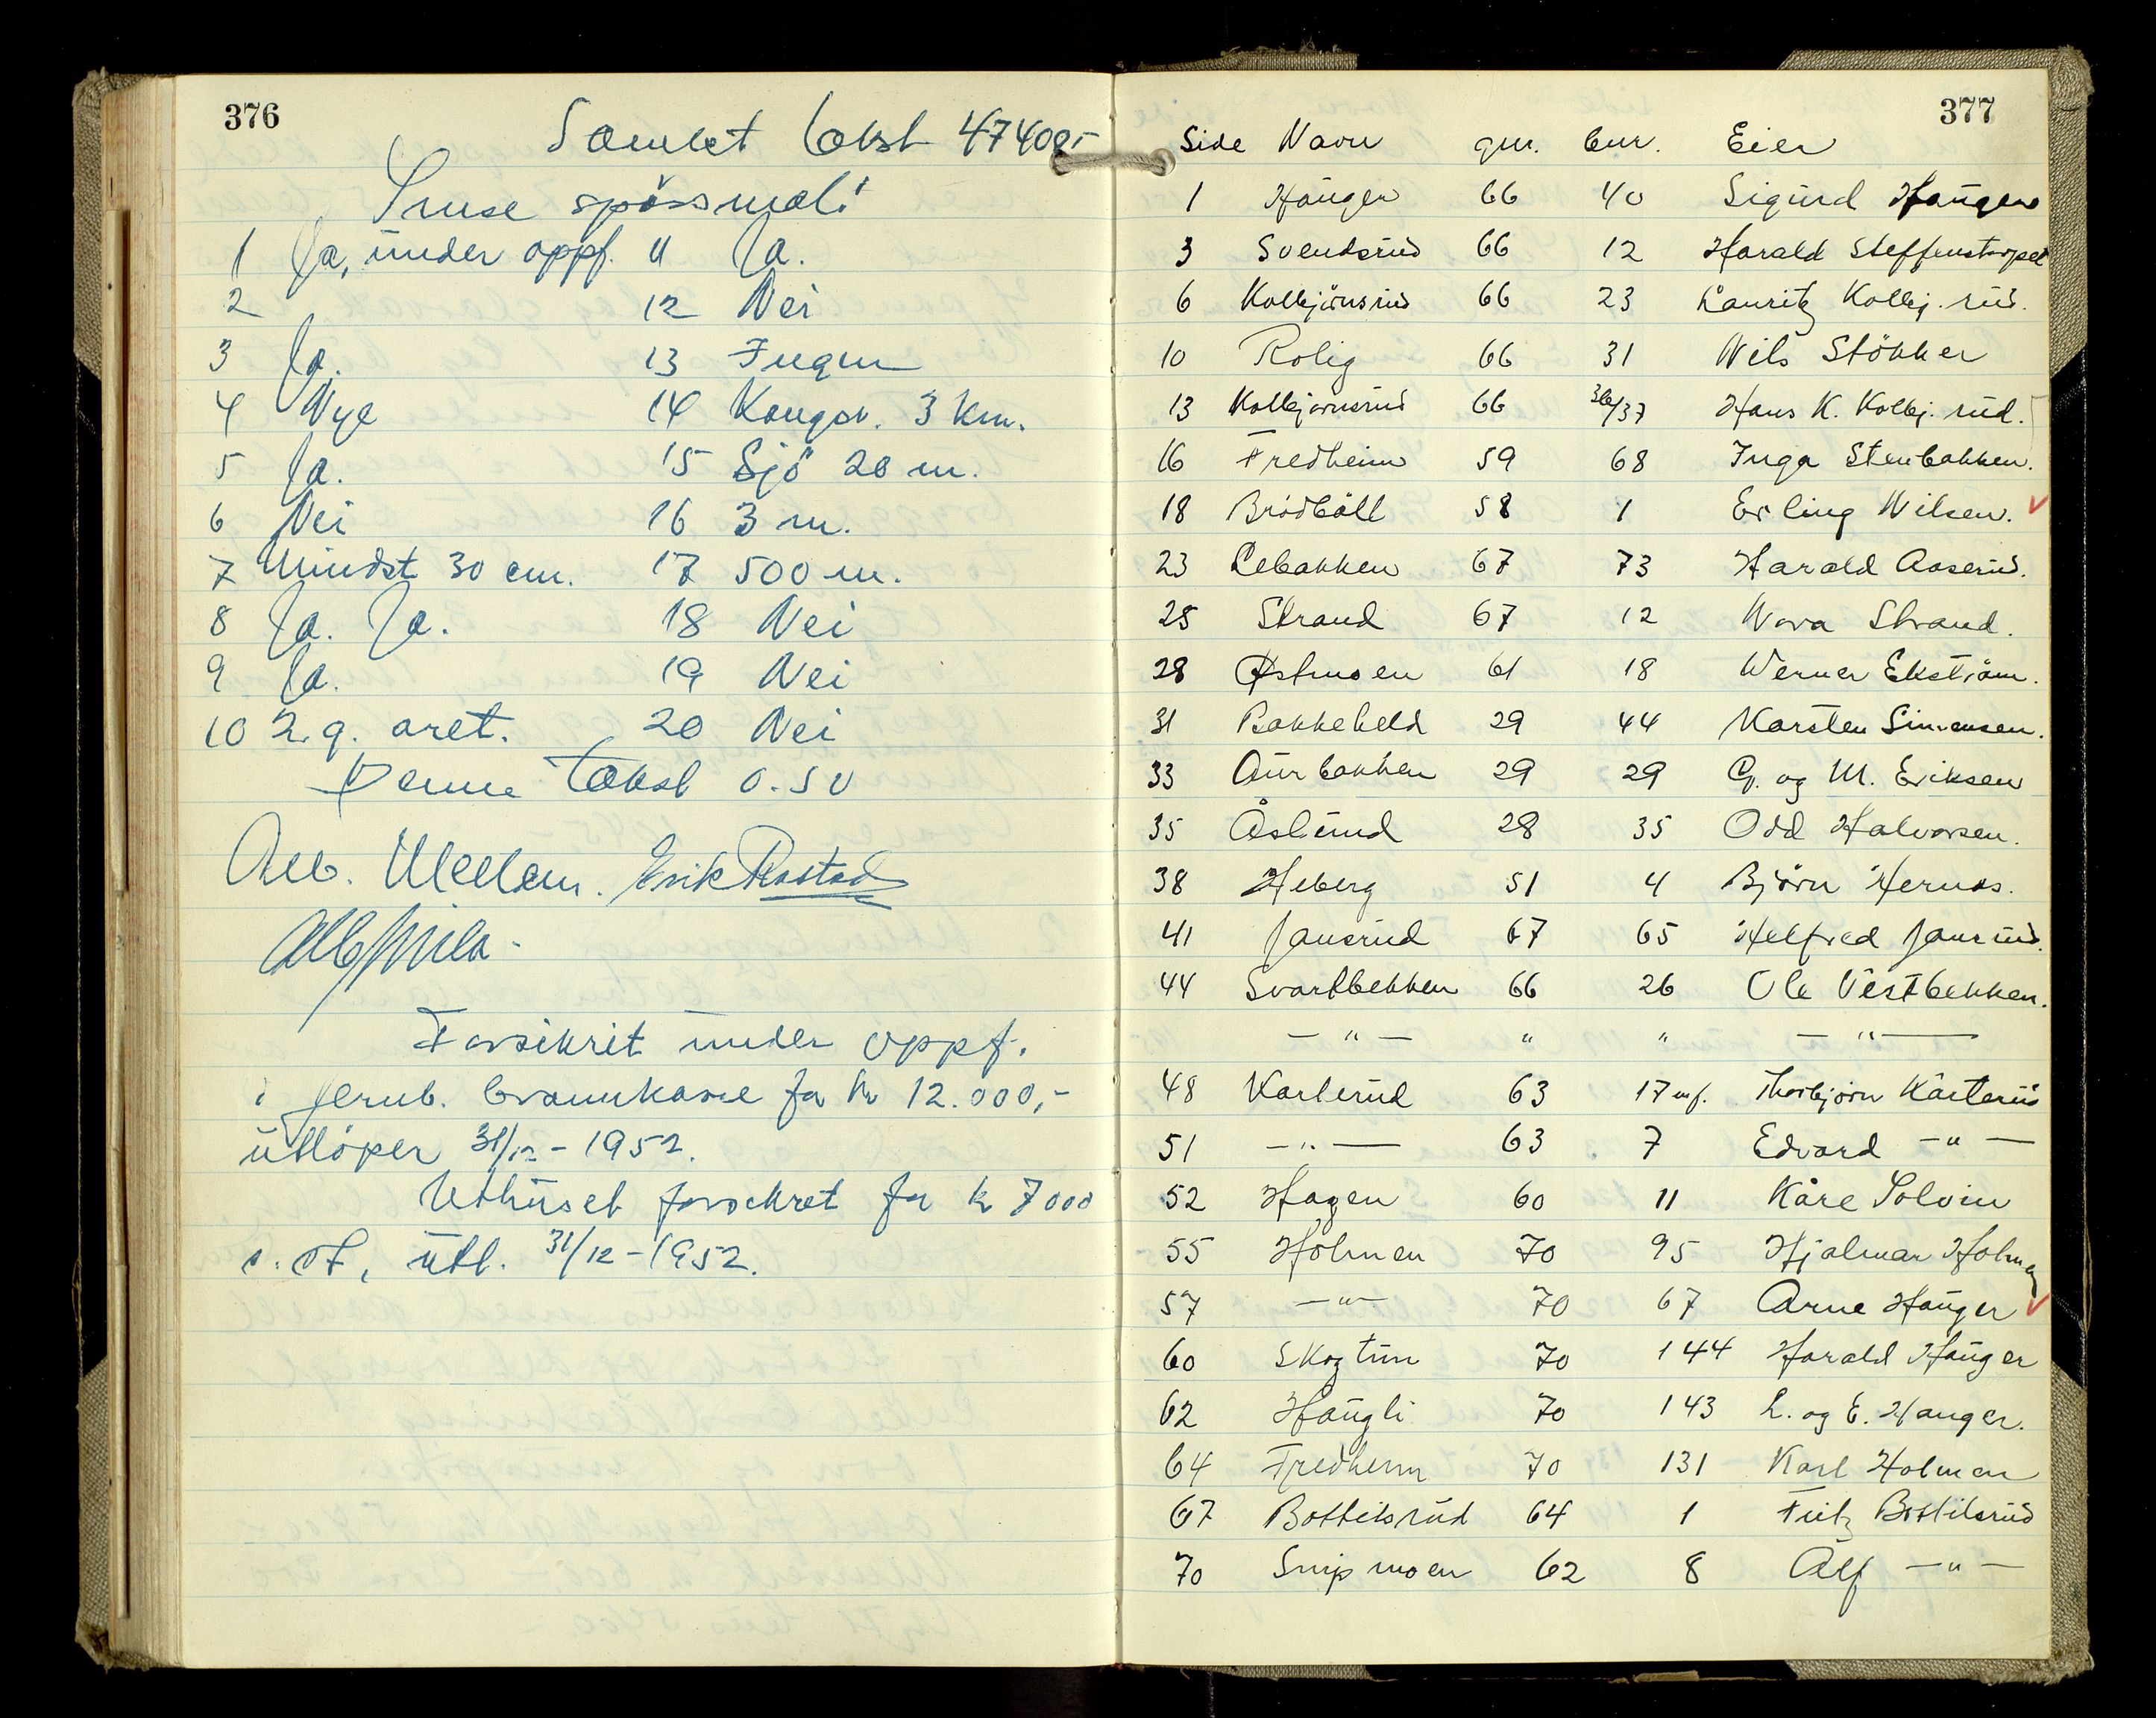 376
Samlet takst 47400,-
spössmål:
1 Ja, under oppf. 11 Ja.
2 12 Nei
3 Ja. 13 Ingen
4 Nye 14 Kongsv. 3 km.
5 Ja. 15 Sjö 20 m.
6 Nei 16 3 m.
7 Mindst 30 cm. 17 500 m.
8 Ja. Ja. 18 Nei
9 Ja. 19 Nei
10 2 g. året. 20 Nei
Denne takst 0.50
Alb. Erik Rastad
Forsikrit under oppf.
i Jernb. brannkasse for kr 12.000,-
utlöper 31/12 - 1952.
Uthuset forsikret for kr 7000
utl. 31/12 - 1952.
377
Side Navn gnr. bnr. Eier
1 Hauger 66 40 Sigurd Haugen
3 Svendsrud 66 12 Harald Steffenstorpet
6 Kolbjörnsrud 66 23 Lauritz Kolbj. rud.
10 Rolig 66 31 Nils Stökker
13 Kolbjørnsrud 66 36/37 Hans K. Kolbj. rud.
16 Fredheim 59 68 Inga Stenbakken.
18 Brödböll 58 1 Erling Nilsen.
23 Lebakken 67 73 Harald Aaserud.
25 Strand 67 12 Nora Strand.
28 Østmoen 61 18 Werner Ekström.
31 Bakkeheld 29 44 Karsten Simensen.
33 Aurbakken 29 29 G. og M. Eriksen
35 Åslund 28 35 Odd Halvorsen.
38 Heberg 51 4 Björn Hernæs.
41 Jansrud 67 65 Helfred Jansrud.
44 Svartbekken 66 26 Ole Vestbekken.
— " — " " — " —
48 Karterud 63 17 mf. Thorbjørn Karterud
51 — " — 63 7 Edvard — " —
52 Hagen 60 11 Kåre Solvin
55 Holmen 70 95 Hjalmar Holmen
57 — " — 70 67 Arne Hauger
60 Skogtun 70 144 Harald Hauger
62 Haugli 70 143 L. og E. Hauger.
64 Fredheim 70 131 Karl Holmen
67 Bottilsrud 64 1 Fritz Bottilsrud
70 Snipmoen 62 8 Alf — " —